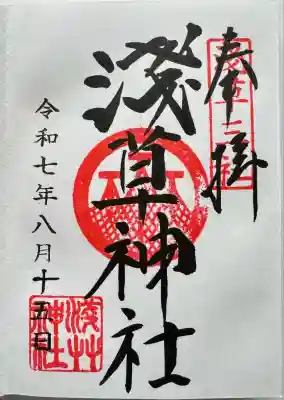 奉拝
淺草神社
令和七年八月十五日
淺草神社